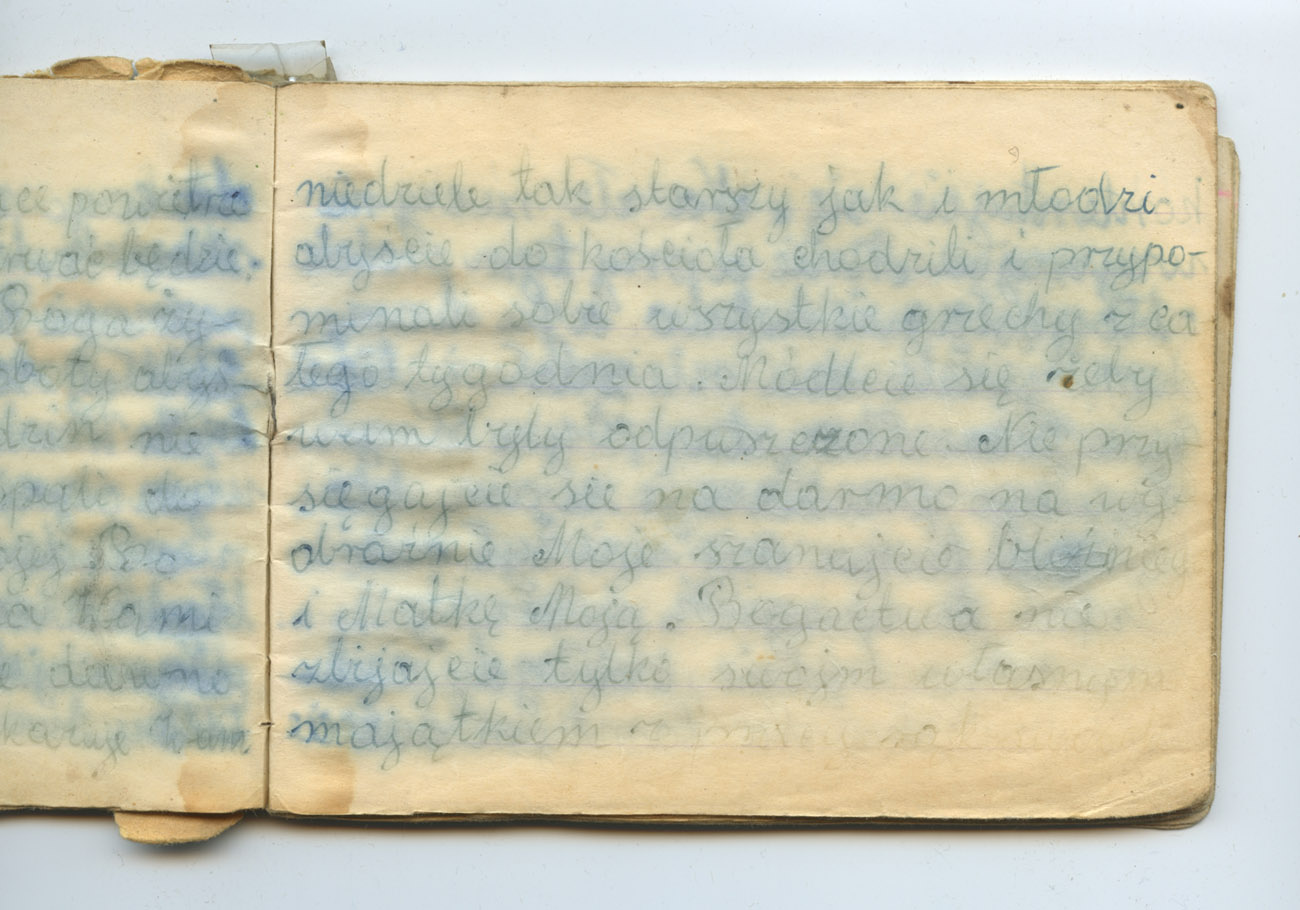 powietrze
będzie.
Boga ży-
boty abyś-
nie
do
Bo
Wami
dawno
Wam
niedziele tak starszy jak i młodzi
abyście do kościoła chodzili i przypo-
minali sobie wszystkie grzechy z ca
łego tygodnia. Módlcie się żeby
wam były odpuszczone. Nie przy-
sięgajcie sie na darmo na wy-
obraźnie Moje szanujcie
i Matkę Moją. Bogactwa nie
zbijajcie tylko swojm własnem
majątkiem z pracy rąk